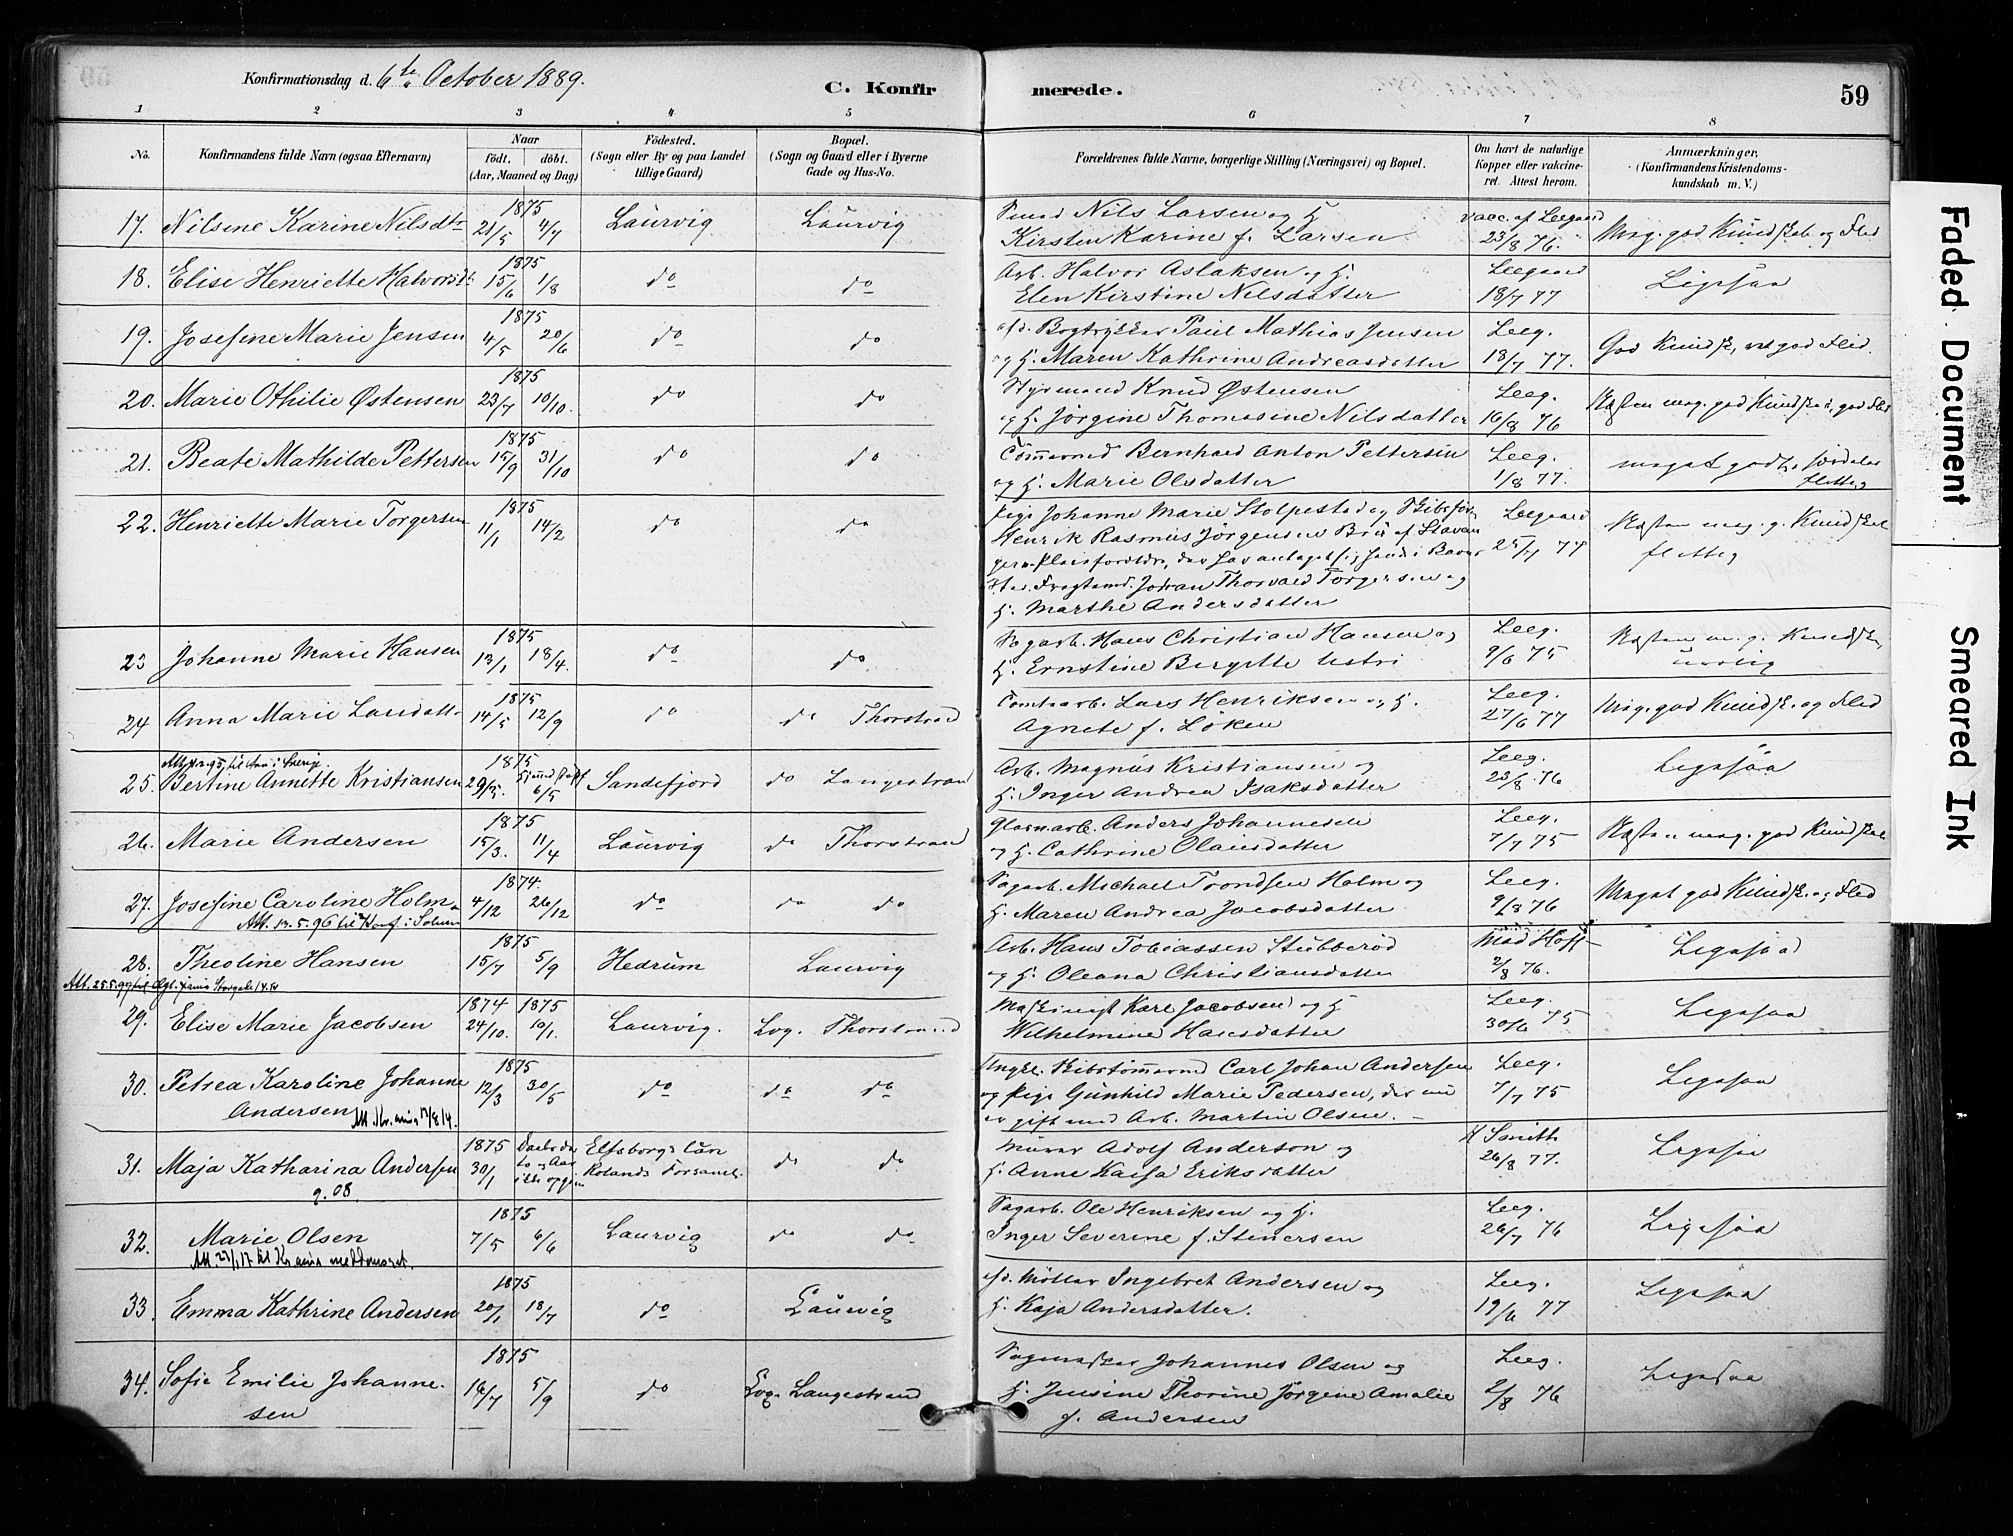 Konfirmationsdag d. 6te October 1889.
C. Konfirmerede.
59
1 2 3 4 5 6 7 8
No.
Konfirmandens fulde Navn (ogsaa Efternavn)
Naar födt. döbt. (Aar, Maaned og Dag)
Födested. (Sogn eller By og paa Landet tillige Gaard)
Bopæl. (Sogn og Gaard eller i Byerne Gade og Hus-No.
Forældrenes fulde Navne, borgerlige Stilling (Næringsvei) og Bopæl.
Om havt de naturlige Kopper eller vakcineret. Attest herom.
Anmærkninger, (Konfirmandens Kristendomskundskab m. V.)
17. Nilsine Karine Nilsdtr 1875 21/5 4/7 Laurvig Laurvig
Smed Nils Larsen og H. Kirsten Karine f. Larsen
vacc. af Leegaard 23/8 76. Meg. god Kundskab og Flid
18. Elise Henriette Halvorsdt. 1875 15/6 1/8 do do
Arb. Halvor Aslaksen og H. Elen Kirstine Nilsdatter
Leegaard 18/7 77 Ligesaa
19. Josefine Marie Jensen 1875 4/5 20/6 do do
afd. Bogtrykker Paul Mathias Jensen og H. Maren Kathrine Andreasdatter
Leeg. 18/7 77. God Kundsk., god Flid.
20. Marie Othilie Østensen 1875 23/7 10/10. do do
Styrmand Knud Østensen og H. Jörgine Thomasine Nilsdatter
Leeg. 16/8 76 Næsten meg. god Kundskab, god Flid
21. Beate Mathilde Pettersen 1875 15/9 31/10 do do
Tömmermd Bernhard Anton Pettersen og H. Marie Olsdatter
Leeg. 1/8 77. meget godt, særdeles flittig
22. Henriette Marie Torgersen 1875 11/1 14/2 do do
Pige Johanne Marie Stolpestad og Skibsför. Henrik Rasmus Jörgensen af Stavanger. Pleieforældre, der har antaget sig hende i Barns Sted Fragtemd. Johan Thorvald Torgersen og H. Marthe Andersdatter
Leegaard 25/7 77 Næsten meg. g. Kundskab flittig
23 Johanne Marie Hansen 1875 13/1 18/4. do do
Sagarb. Hans Christian Hansen og H. Ernstine Bergitte
Leeg. 9/6 75 Næsten m. g. Kundsk. urolig
24 Anna Marie Larsdatt. 1875 14/5 12/9 do do Thorstrand
Tomtearb. Lars Henriksen og H. Agnete f. Löken
Leeg. 27/6 77 Meg. god Kundsk. og Flid
25. Bertine Annette Kristiansen 1875 29/3. 6/5 Sandefjord do Langestrand
Arb. Magnus Kristiansen og H. Inger Andrea Isaksdatter
Leeg. 23/8 76 Ligesaa
26. Marie Andersen 1875 15/3. 11/4 Laurvig do Thorstrand
Glasarb. Anders Johannesen og H. Cathrine Olausdatter
Leeg. 7/7 75 Næsten meg. god Kundskab
27. Josefine Caroline Holm 1874. 4/12 26/12 do do do
Att. 13.5.96 til Konf. i Solum
Sagarb. Michael Trondsen Holm og H. Maren Andrea Jacobsdatter
Leeg. 9/8 76 Meget god Kundsk. og Flid
28. Theoline Hansen 1875 15/7 5/9 Hedrum Laurvig
Arb. Hans Tobiassen Stubberöd og H. Oleana Christiansdatter
Mad Hoff 2/8 76. Ligesaa
29. Elise Marie Jacobsen 1874 24/10. 1875 10/1. Laurvig. Lvg. Thorstrand
Maskinist Karl Jacobsen og H Wilhelmine Hansdatter
Leeg. 30/6 75 Ligesaa
30. Petrea Karoline Johanne Andersen 1875 12/3 30/5 do do do
Ungk. Skibstömmermd Carl Johan Andersen og Pige Gunhild Marie Pedersen, der nu er gift med Arb. Martin Olsen.
Leeg. 7/7 75 Ligesaa
31. Maja Katharina Andersen 1875 30/1 Daabsdato og Aar ikke opgiv. Elfsborgs Län Rolands Forsaml. do do
g. 08
Murer Adolf Anderson og H. Anne Kaisa Eriksdatter
Smith 26/8 77. Ligesaa
32. Marie Olsen 1875 7/5 6/6 Laurvig do do
Sagarb. Ole Henriksen og H. Inger Severine f. Stenersen
Leeg. 26/7 76 Ligesaa
33. Emma Kathrine Andersen 1875 20/1 18/7 do Laurvig
afd. Möller Ingebret Andersen og H. Kaja Andersdatter.
Leeg. 19/6 77 Ligesaa
34. Sofie Emilie Johannesen 1875 14/7 5/9 do Lvg. Langestrand
Sagmester Johannes Olsen og H. Jensine Thorine Jörgine Amalie f. Andersen
Leeg. 2/8 76 Ligesaa
Faded Document
Smeared Ink